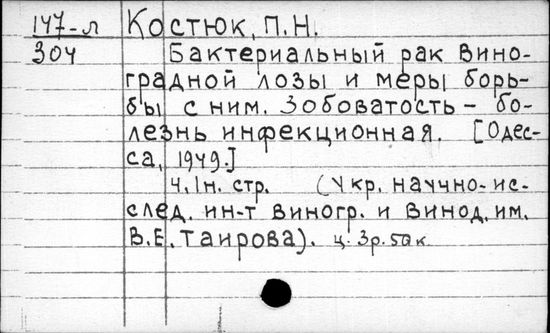 147-л Костюк, П.Н.
304 Бактериальный рак вино-
градной лозы и меры борь-
бы с ним. Зобоватость - бо-
лезнь инфекционная. [Одес-
са, 1949.]
4, 1н. стр. (Укр. научно-ис-
след. ин-т виногр. и винод. им.
В.Е. Таирова). ц. 3р. 50к.